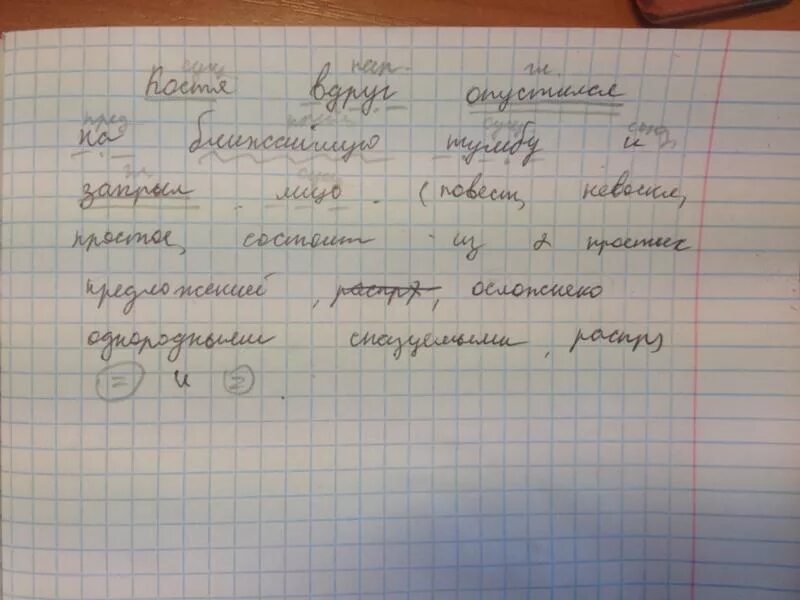 сущ. нар. гл.
Костя вдруг опустился
пред. прил. сущ. союз
на ближайшую тумбу и
гл. сущ.
закрыл лицо. (повест, невоскл,
простое, состоит из 2 простых
предложений, распр), осложнено
однородными сказуемыми, распр)
= и =